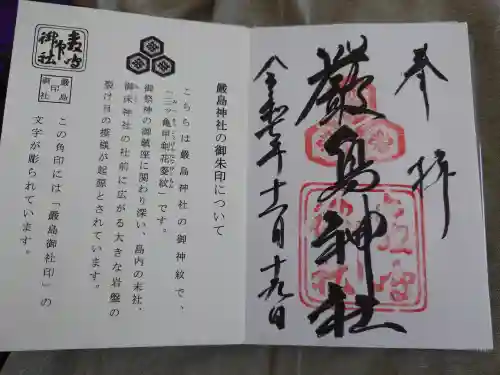 奉拝
嚴島神社
令和七年十一月十九日
嚴島神社の御朱印について
こちらは嚴島神社の御神紋で、
「三ツ亀甲剣花菱紋」です。
御祭神の御鎮座に関わり深い、島内の末社、
御床神社の社前に広がる大きな岩盤の
裂け目の模様が起源とされています。
嚴島
御社
印
この角印には「嚴島御社印」の
文字が彫られています。